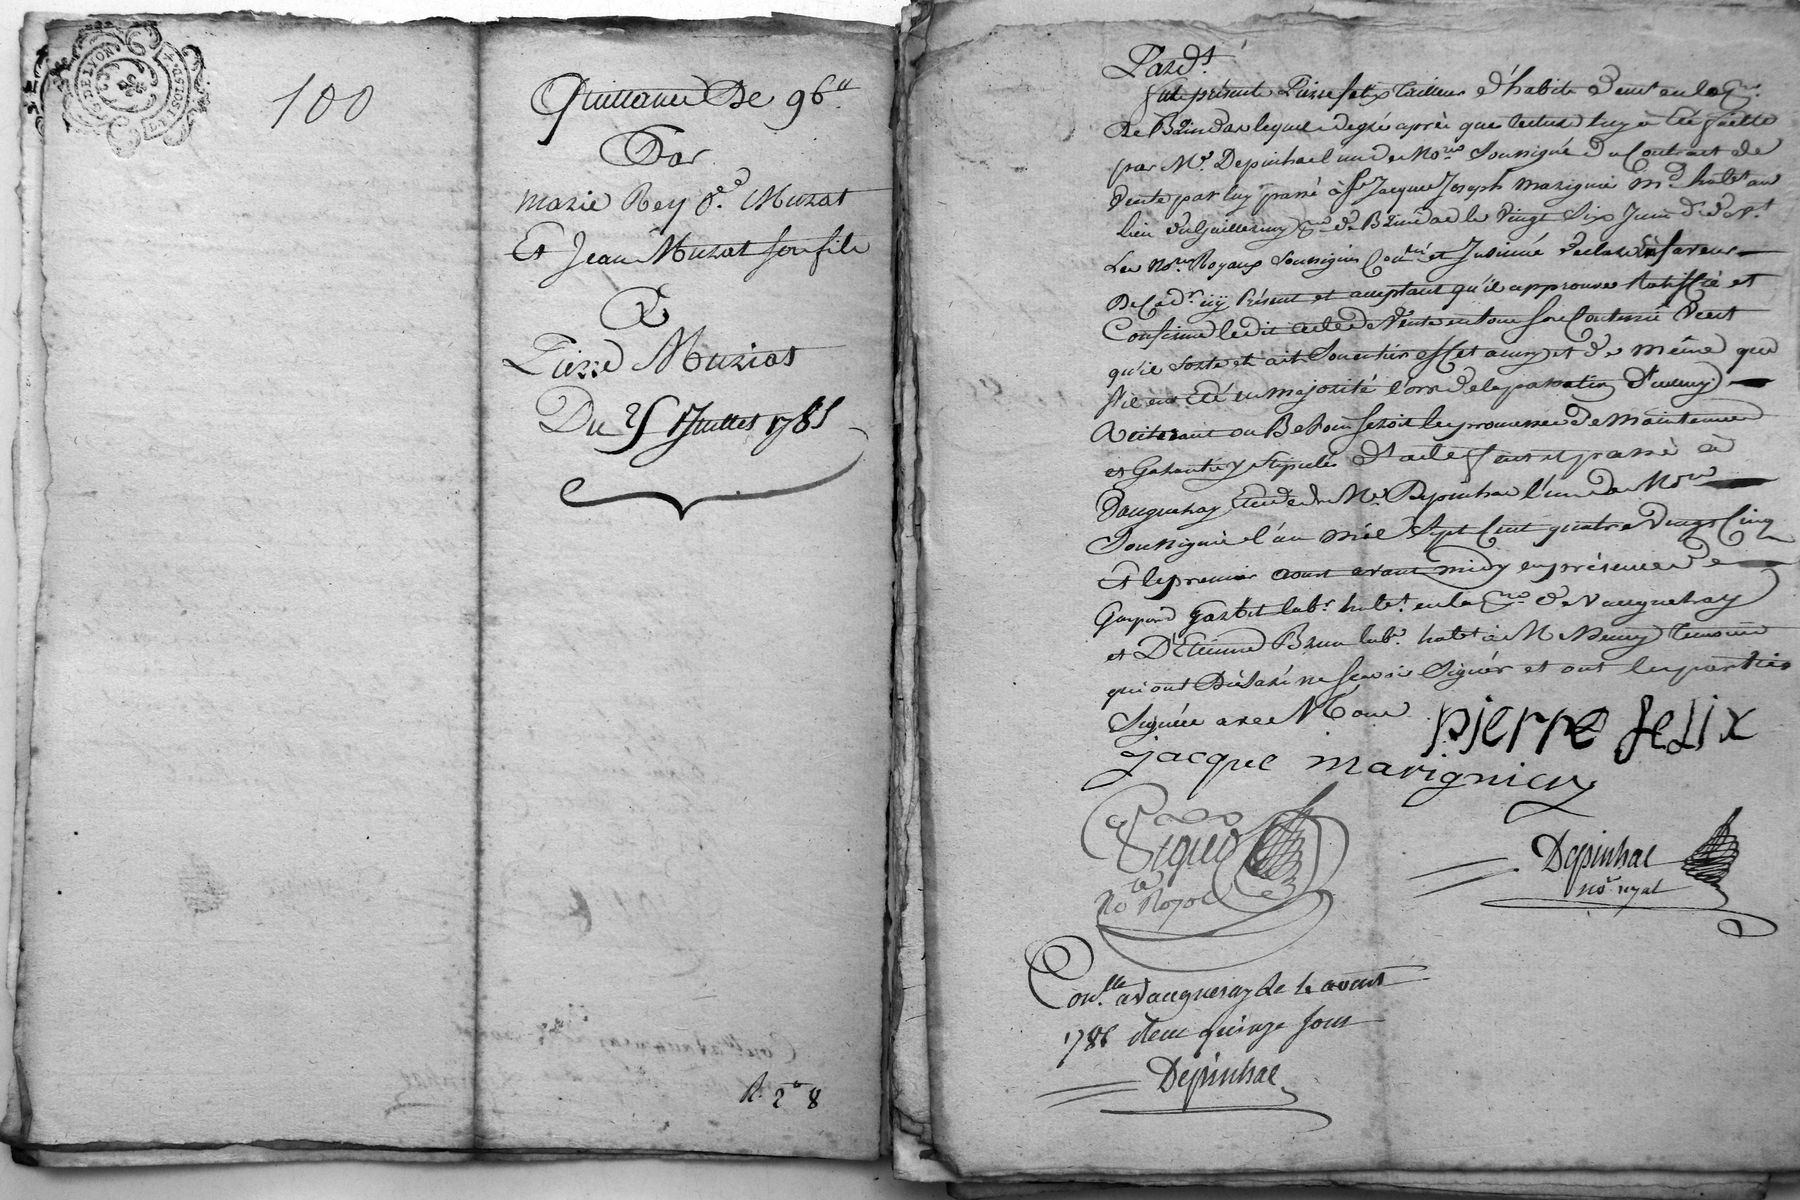 DE LYON
100
Quittance De 96.ll
Par
marie Rey v.e Muzat
Et Jean Muzat son fils
A
Pierre Muziat
Du 25 Juillet 1785
R. 2 8
Pard.t
fut présent Pierre felix tailleur d'habits demt en la
de lequel degré après que lecture luy a été faitte
par M.e Depinhac l'un des No.res soussigné du Contract de
Vente par luy passé à s.r Jacques Joseph marignié m.d habt au
lieu du de le Vingt Six Juin d.r dev.t
Les No.res Royaux soussignés Con.lé et Insinué declare en faveur
présent et acceptant qu'il approuve Ratiffié et
Confirme ledit acte de Vente en tout son Contenu Veut
qu'il sorte et ait Son entier effet aussy et de même que
s'il eut été en majorité lors de la passation d'iceluy
Reiterant ou Besoin seroit les promesses de maintenue
et Garantie y stipulés d'acte fait et passé à
Vaugneray Etude de M.e Depinhac l'un des No.res
soussignés l'an mil Sept Cent quatre Vingt Cinq
Et le premier aoust avant midy en présence de
Gaspard lab.r habt. en la p.sse de Vaugneray
et D'Etienne Brun lab.r habt à Messimy temoins
qui ont déclaré ne sçavoir signer et ont les parties
Signée avec Nous
pierre felix
jacque marignier
No.re Royal
Depinhac
no.re royal
Con.lle a Vaugneray le 1e aoust
1785 Reçu quinze sous
Depinhac